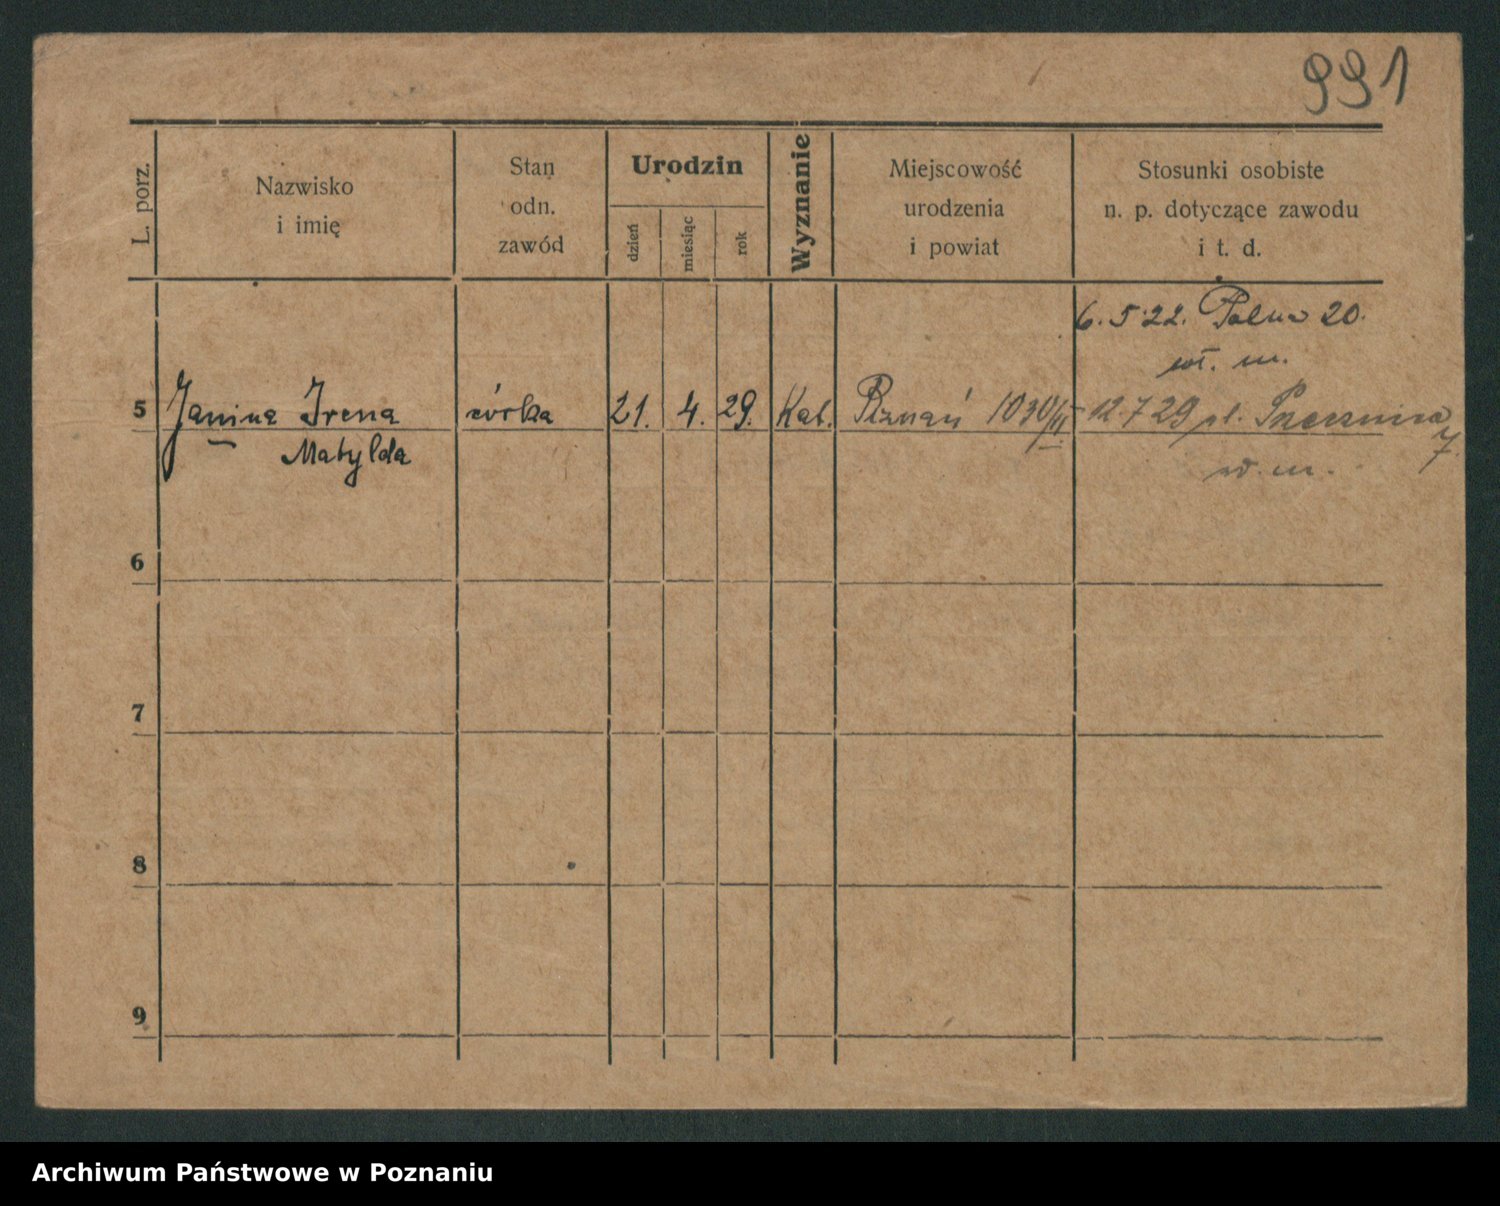 991
L. porz.
Nazwisko
i imię
Stan
odn.
zawód
Urodzin
dzień
miesiąc
rok
Wyznanie
Miejscowość
urodzenia
i powiat
Stosunki osobiste
n. p. dotyczące zawodu
i t. d.
6. 5. 22. Polna 20.
wł. m.
5 Janina Irena córka 21. 4. 29. Kat. Poznań 12. 7 29 pl.
Matylda
7.
m.
6
7
8
9
Archiwum Państwowe w Poznaniu